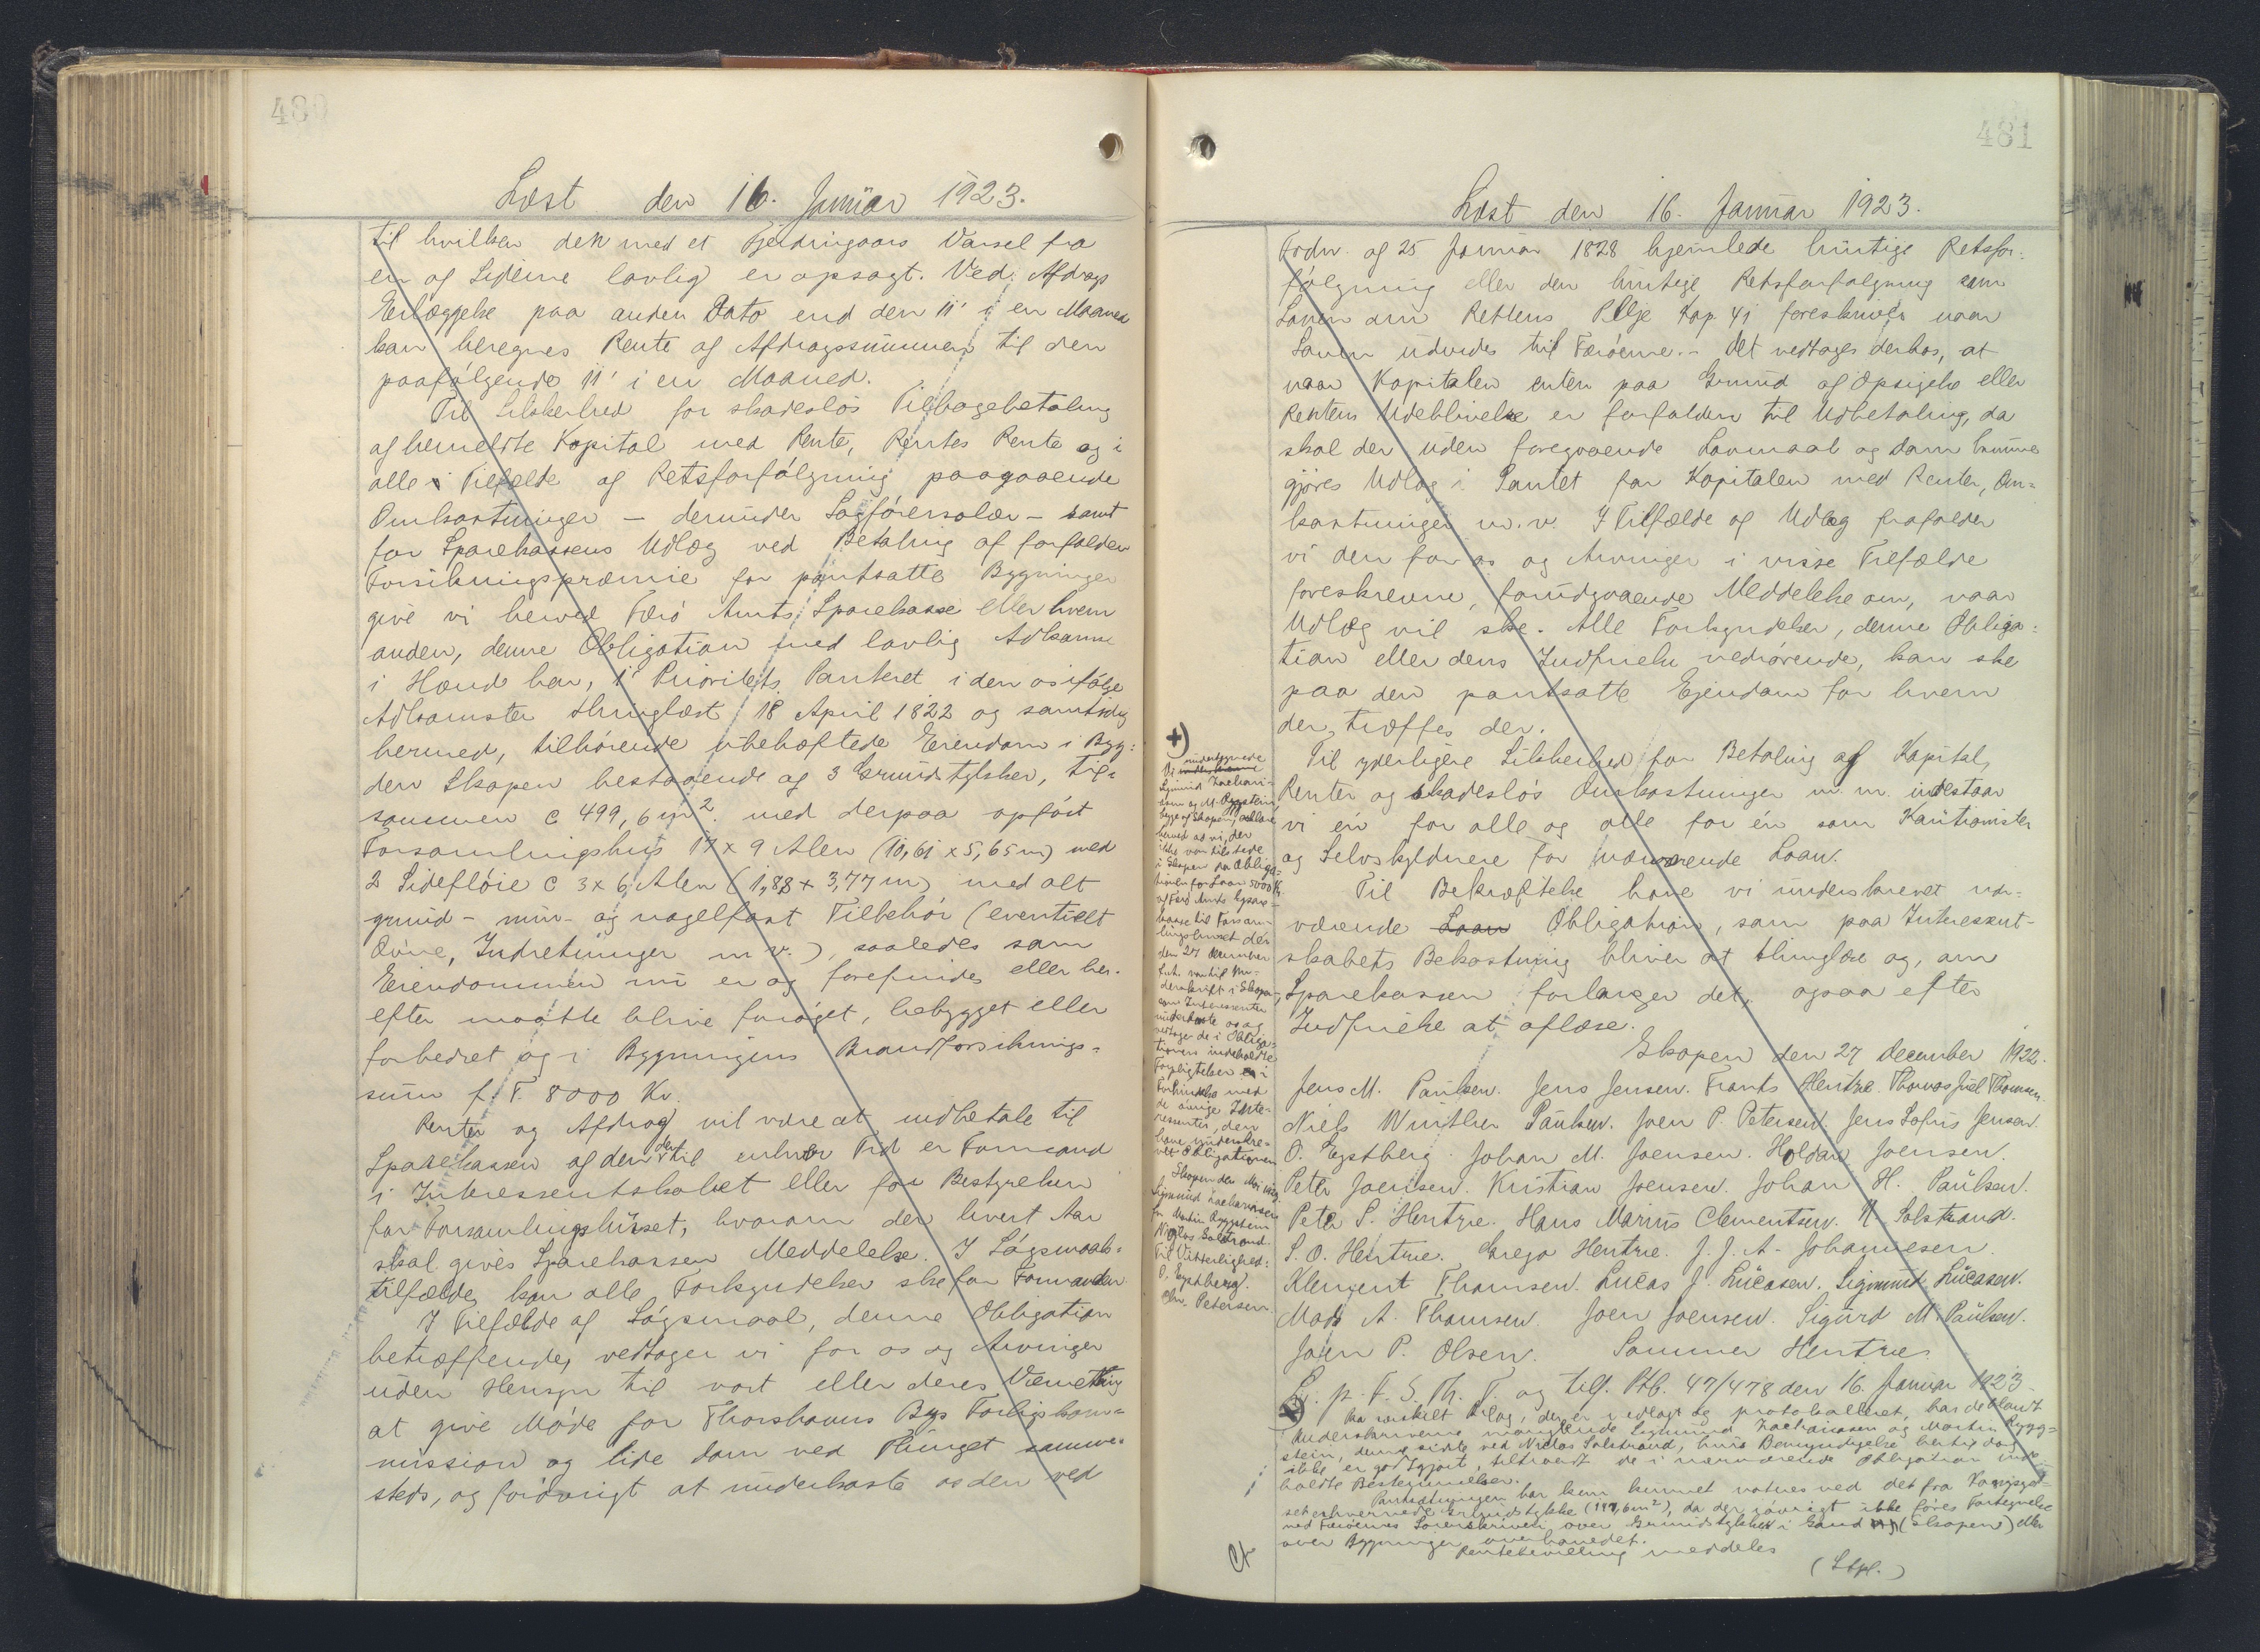 480
Læst den 16. Januar 1923.
til hvilken den med et Fjerdingaars Varsel fra
en af Siderne lovlig er opsagt. Ved Afdrags
Erlæggelse paa anden Dato end den 11' i en Maaned
kan beregnes Rente af Afdragssummen til den
paafølgende 11' i en Maaned.
Til Sikkerhed for skadesløs Tilbagebetaling
af bemeldte Kapital med Rente, Rentes Rente og i
alle Tilfælde af Retsforfølgning paagaaende
Omkostninger – derunder Sagførersalær – samt
for Sparekassens Udlæg ved Betaling af forfalden
Forsikringspræmie for pantsatte Bygninger
give vi herved Færø Amts Sparekasse eller hvem
anden, denne Obligation med lovlig Adkomst
i Hænde har, 1' Prioritets Panteret i den os ifølge
Adkomster thinglæst 18 April 1822 og samtidig
hermed, tilhørende ubehæftede Eiendom i Byg-
den Skopen bestaaende af 3 Grundstykker, til-
sammen c 499,6 m². med derpaa opført
Forsamlingshus 17 x 9 Alen (10,61 x 5,65 m) med
2 Sidefløie c 3 x 6 Alen (1,88 x 3,77 m) med alt
grund- mur- og nagelfast Tilbehør (eventuelt
Ovne, Indretninger m. v.), saaledes som
Eiendommen nu er og forefindes eller her-
efter maatte blive forøget, bebygget eller
forbedret og i Bygningens Brandforsikrings-
sum f. T. 8000 Kr.
Renter og Afdrag vil være at indbetale til
Sparekassen af den der til enhver Tid er Formand
i Interessentskabet eller for Bestyrelsen
for Forsamlingshuset, hvorom der hvert Aar
skal gives Sparekassen Meddelelse. I Søgsmaals-
tilfælde kan alle Forkyndelser ske for Formanden
I Tilfælde af Søgsmaal, denne Obligation
betræffende, vedtager vi for os og Arvinger
uden Hensyn til vort eller deres Værnething
at give Møde for Thorshavns Bys Forligskom-
mission og lide Dom ved Thinget sammes
steds, og forøvrigt at underkaste os den ved
481
Læst den 16. Januar 1923.
Frdn. af 25 Januar 1828 hjemlede hurtige Retsfor-
følgning eller den hurtige Retsforfølgning som
Loven om Rettens Pleje Kap. 41 foreskriver naar
Loven udvides til Færøerne. – Det vedtages derhos, at
naar Kapitalen enten paa Grund af Opsigelse eller
Rentens Udeblivelse er forfalden til Udbetaling, da
skal der uden foregaaende Lovmaal og Dom kunne
gjøres Udlæg i Pantet for Kapitalen med Renter, Om-
kostninger m. v. I Tilfælde af Udlæg frafalder
vi den for os og Arvinger i visse Tilfælde
foreskrevne, forudgaaende Meddelelse om, naar
Udlæg vil ske. Alle Forkyndelser, denne Obliga-
tion eller dens Indfrielse vedrørende, kan ske
paa den pantsatte Ejendom for hvem
der træffes der.
Til yderligere Sikkerhed for Betaling af Kapital,
Renter og skadesløs Omkostninger m. m. indestaar
vi én for alle og alle for én som Kautionister
og Selvskyldnere for nærværende Laan.
Til Bekræftelse have vi underskrevet nær-
værende Laan Obligation, som paa Interessent-
skabets Bekostning bliver at thinglæse og, om
Sparekassen forlanger det, ogsaa efter
Indfrielse at aflæse.
Skopen den 27 December 1922.
Jens M. Paulsen. Jens Jensen. Frants Hentze. Thomas Juel Thomsen.
Niels Winther Paulsen. Joen P. Petersen. Jens Sofus Jensen.
O. Eystberg. Johan M. Joensen. Holdan Joensen.
Peter Joensen. Kristian Joensen. Johan H. Paulsen.
Peter S. Hentze. Hans Marius Clementsen. N. Solstrand.
S. O. Hentze. Grega Hentze. J. J. A. Johannesen.
Klement Thomsen. Lucas J. Lucasen. Sigmund Lucasen.
Mads A. Thomsen. Joen Joensen. Sigurd M. Paulsen.
Joen P. Olsen. Sommer Hentze.
L. p. F. S. Th. T. og tilf. Ptb. 47/478 den 16. Januar 1923
+) Paa særskilt Bilag, der er vedlagt og protokolleret, har de blandt
Underskriverne manglende Sigmund Zachariasen og Martin Rygg-
stein, denne sidste ved Niclas Solstrand, hvis Bemyndigelse hertil dog
ikke er godtgjort, tiltraadt de i nærværende Obligation inde-
holdte Bestemmelser.
Pantsætningen har kun kunnet noteres ved det fra Kongsgod-
set erhvervede Grundstykke (199,6 m²), da der iøvrigt ikke føres Fortegnelse
ved Færøernes Sorenskriveri over Grundstykker i Sand (Skopen) eller
over Bygninger overhovedet.
Rentebevilling meddeles
(Stpl.)
Cf.
+)
undertegnede
Vi
Sigmund Zachari-
sen og M. Ryggstein
begge af Skopen, erklære
herved at vi, der
ikke var tilstede
i Skopen da Obliga-
tionen for Laan 5000 Kr
af Færø Amts Spare-
kasse til Forsam-
lingshuset der
den 27 December
var til Un-
derskrift i Skopen,
som Interessenter
underkaste os og
vedtager de i Obliga-
tionens indeholdte
Forpligtelser i
Forbindelse med
de øvrige Inte-
ressenter, der
have underskre-
vet Obligationen
Skopen den
Sigmund Zachariasen
for Martin Ryggstein
Niclas Solstrand
Til Vitterlighed:
O. Eystberg.
Chr. Petersen.